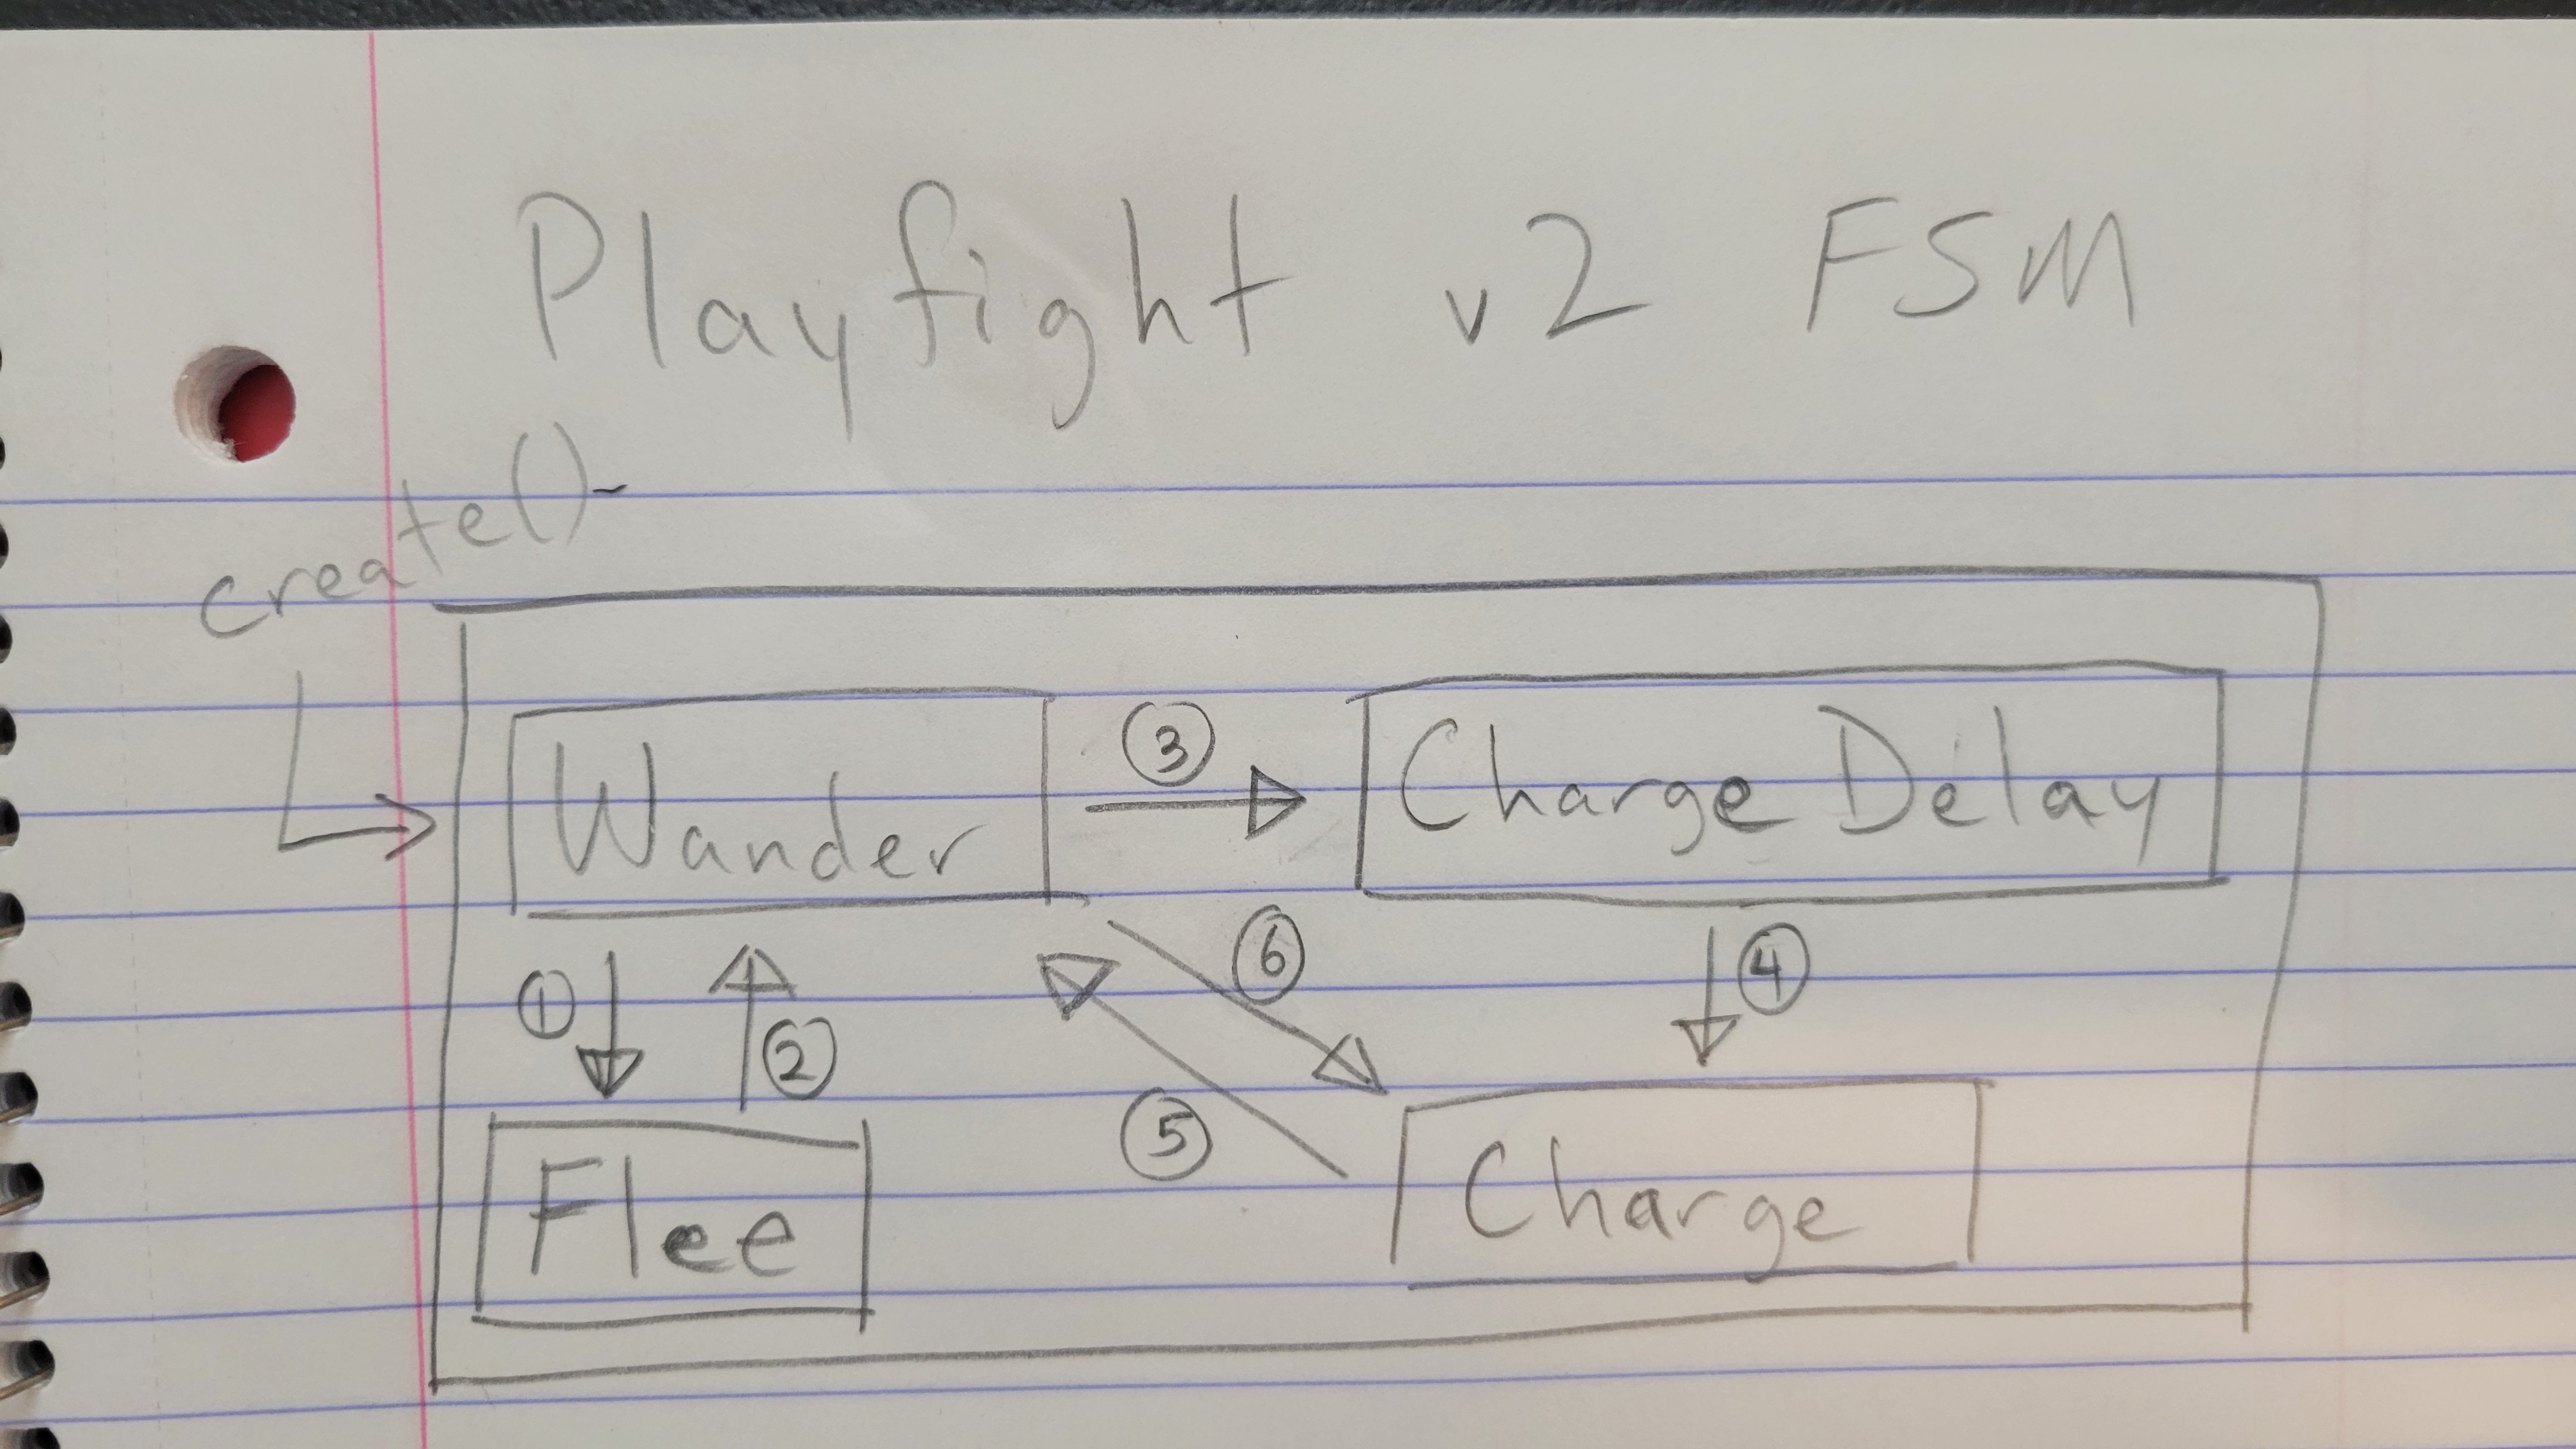 Playfight v2 FSM
create()-
Wander
③
Charge Delay
①
②
⑥
④
⑤
Flee
Charge